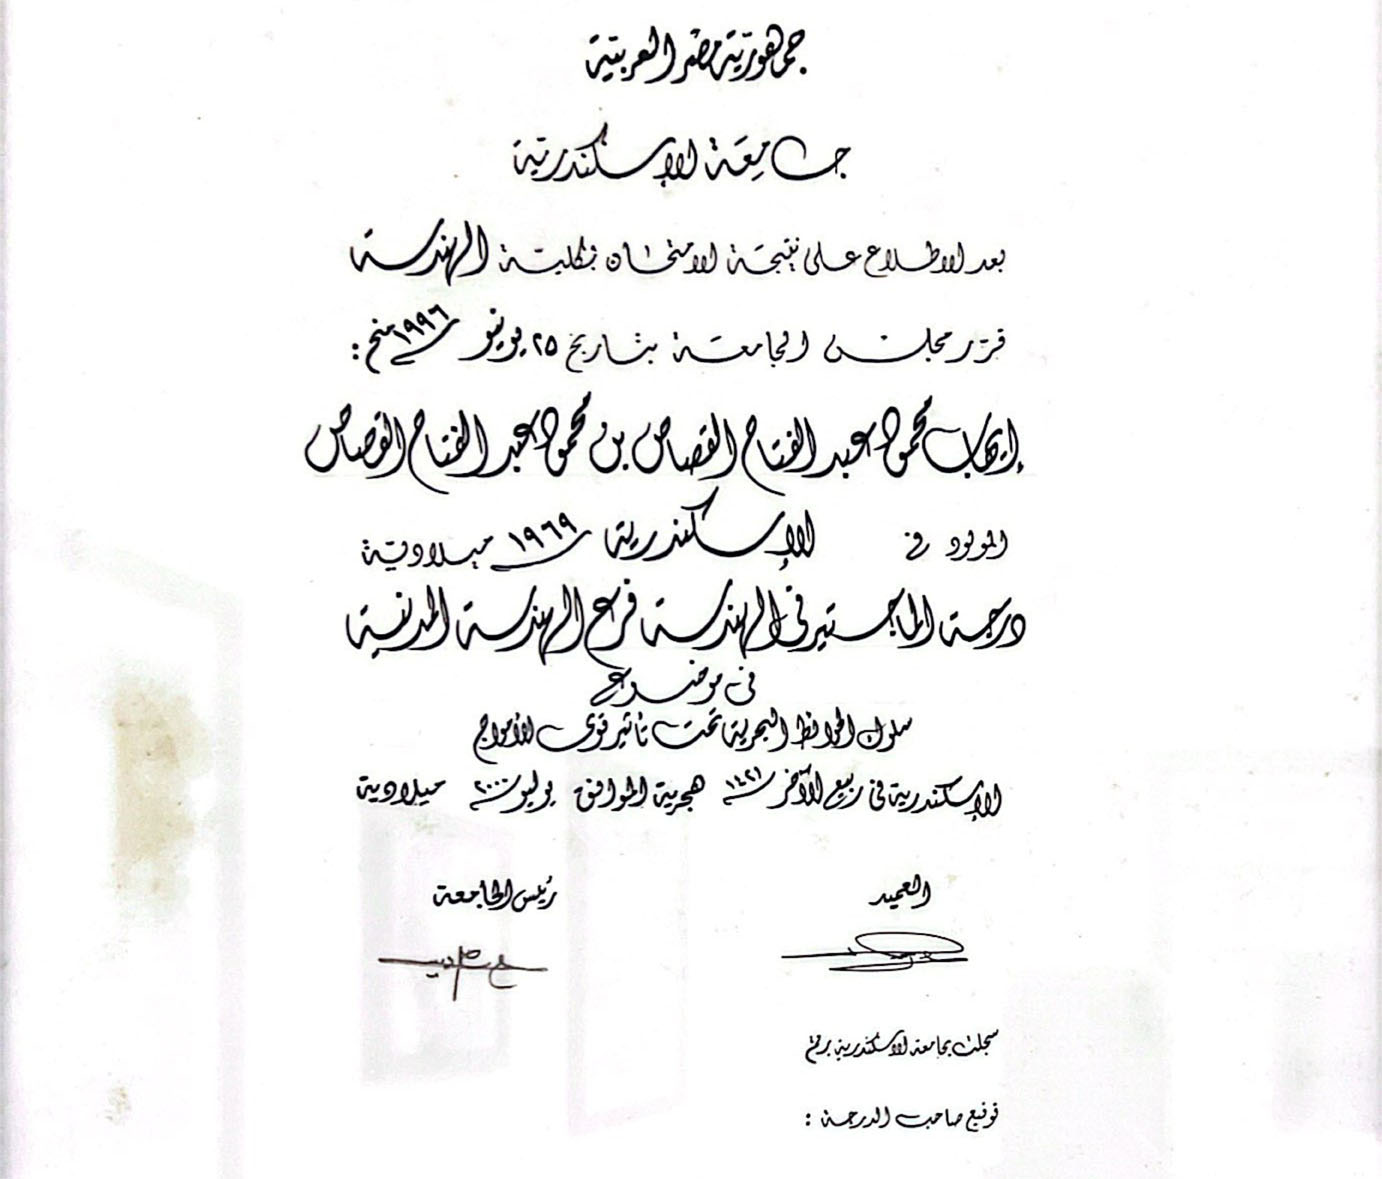 جمهورية مصر العربية
جامعة الإسكندرية
بعد الاطلاع على نتيجة الامتحان بكلية الهندسة
قرر مجلس الجامعة بتاريخ ٢٥ يونيو ١٩٩٦ منح :
إيهاب محمود عبد الفتاح القصاص بن محمود عبد الفتاح القصاص
المولود في الإسكندرية ١٩٦٩ ميلادية
درجة الماجستير في الهندسة فرع الهندسة المدنية
في موضوع
سلوك الحوائط البحرية تحت تأثير قوى الأمواج
الإسكندرية في ربيع الآخر ١٤٢١ هجرية الموافق يوليو ٢٠٠٠ ميلادية
العميد رئيس الجامعة
سجلت بجامعة الإسكندرية برقم
توقيع صاحب الدرجة :